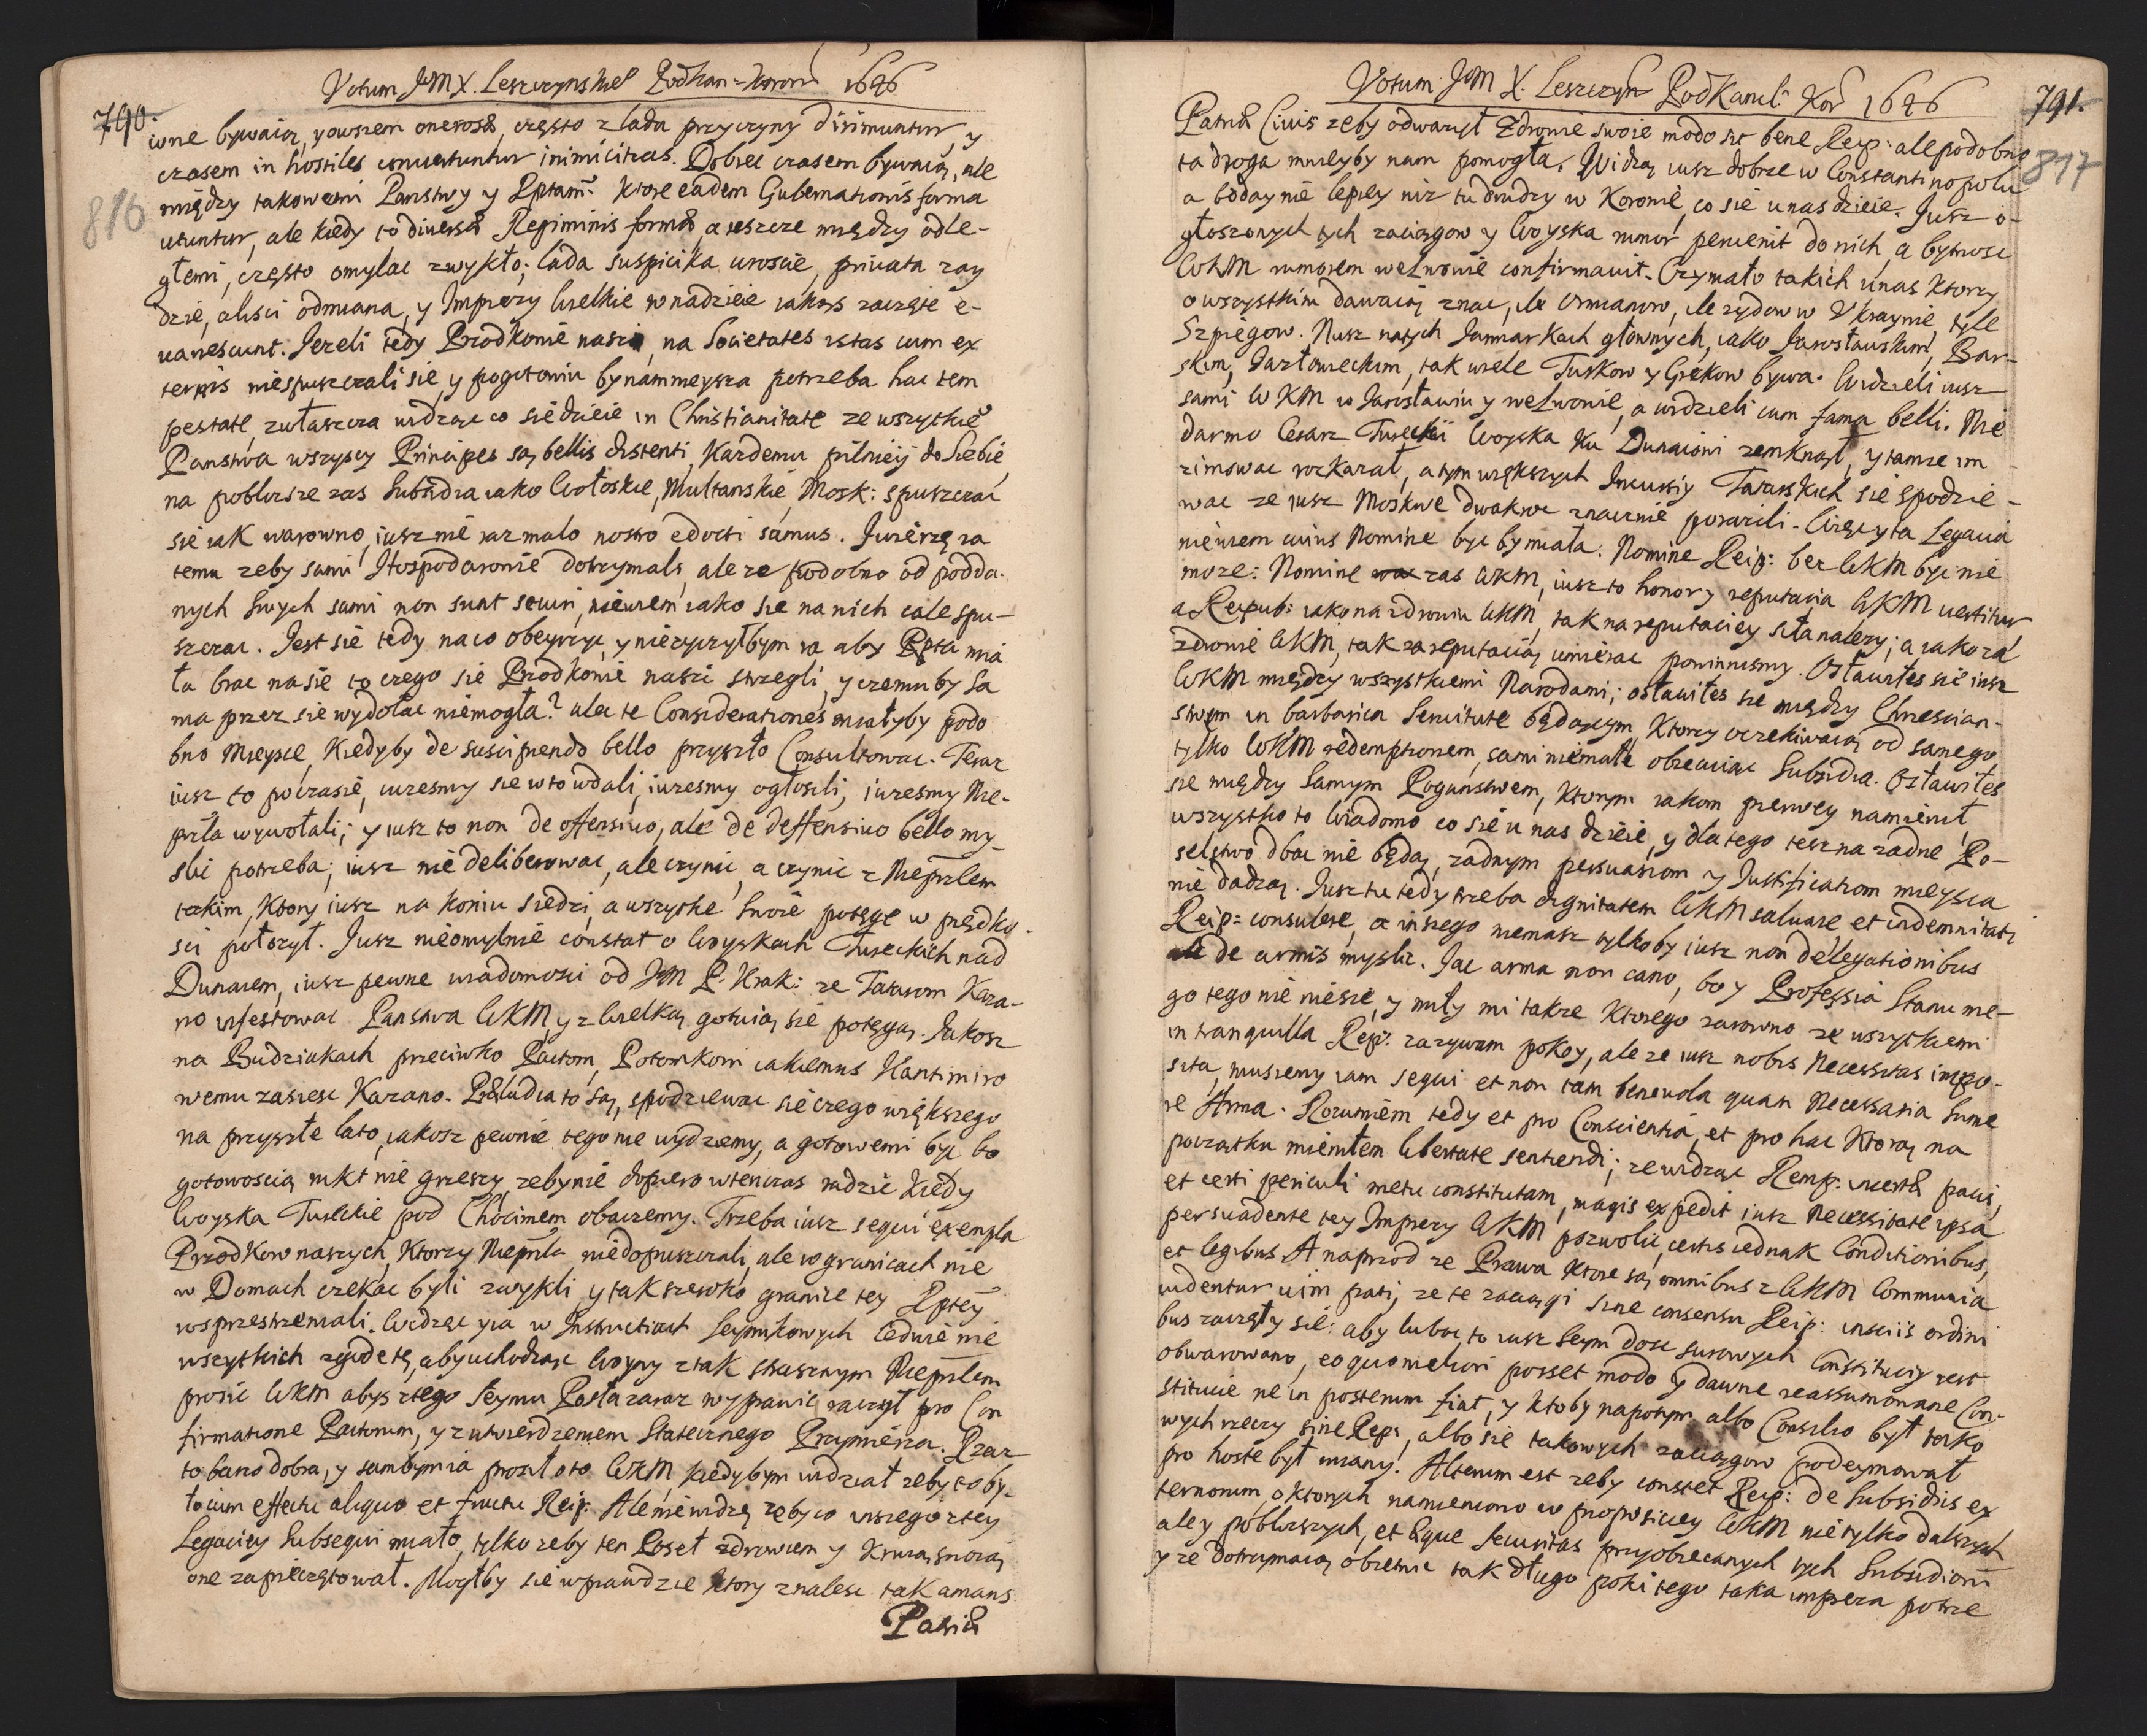 Votum JeMX. Leszczynskie° Podkan= Koron 1646
790.
816
iune bywaią, y owszem onerosæ, często z lada przyczyny dirimuntur, y
czasem in hostiles conuertuntur inimicitias. Dobrec czasem bywaią, ale
między takowemi Panstwy y Rptami Ktore eadem Gubernationis forma
utuntur, ale kiedy to diuersæ Regiminis formæ, a ieszcze między odle-
głemi, często omylac zwykło; lada suspicika uroscie, priuata zay
dzie, alisci odmiana, y Imprezy Wielkie w nadzieie iakoys zaczęte e-
uanescunt. Jezeli tedy Przodkowie naszi na Societates istas cum ex
ternis niespuszczali się, y pogotowiu bynammeysza potrzeba hac tem
pestate, zwłaszcza widząc co się dzieie in Christianitate ze wszytkie°
Panstwa wszyscy Principes są bellis distenti, Kazdemu pilnieij do Siebie,
na poblizsze zas Subsidia iako Wołoskie, Multanskie, Mosk: spuszczac
się iak warowno, iusz nie raz malo nostro edocti samus. Iwierzę ia
temu zeby sami Hospodarowie dotrzymali, ale ze podobno od podda-
nych swych sami non sunt securi, niewiem iako się na nich cale spu-
szczac. Jest się tedy na co obeyrzyc, y nieżyczyłbym ia aby Rpta mia
ła brac na się to czego się Przodkowie naszi strzegli, y czemu by Sa
ma przez się wydołac niemogła? ale te Considerationes miałyby podo
bno Mieysce, Kiedyby de suscipiendo bello przyszło Consultowac. Teraz
iusz to po czasie, iuzesmy się w to wdali, iuzesmy ogłosili, iuzesmy Nie-
prła wywołali; y iusz to non de offensiuo, ale de deffensiuo bello my-
slic potrzeba; iusz nie deliberowac, ale czynic, a czynic z Nieprzlem
takim, Ktory iusz na Koniu siedzi, a wszytkę Swoię potęgę w prędko-
sci połozył. Jusz nieomylnie constat o Woyskach Tureckich nad
Dunaiem, iusz pewne wiadomosci od JeM P. Krak: ze Tatarom Kaza-
no infestowac Panstwa WKM y z Wielką gotuią się potęgą. Jakosz
na Budziakach przeciwko Pactom, Potomkom iakiemus Kantimiro
wemu zasiesc Kazano. Præludia to są, spodziewac się czego większego
na przyszłe lato, iakosz pewnie tego nie uydziemy, a gotowemi byc bo
gotowoscią nikt nie grzeszy, zebynie dopiero wtenczas radzic kiedy
Woyska Tureckie pod Chocimem obaczemy. Trzeba iusz sequi exempla
Przodkow naszych, Ktorzy Nieprzla niedopuszczali, ale w granicach nie
w Domach czekac byli zwykli y tak szeroko granice tey Rptey
rosprzestrzeniali. Widzęc y ia w Instructiach Seymikowych ledwie nie
wszytkich zgodę tę, aby uchodząc Woyny z tak strasznym Nieprzlem
prosic WKM abys z tego Seymu Posła zaraz wyprawic raczył pro Con
firmatione Pactorum, y z utwierdzeniem Statecznego Przymierza. Rzecz
to barzo dobra, y sambym ia prosił o to WKM, kiedybym widział zeby to by-
ło cum effectu aliquo et fructu Reip: Ale niewidzę zeby co inszego z tey
Legaciey Subsequi miało, tylko zeby ten Poseł zdrowiem y Krwią swoią
one zapieczętował. Mogłby się wprawdzie ktory znalesc tak amans
Patriæ
Votum JeM X. Leszczyn° PodKancl: Kor 1646
791.
817
Patriæ Ciuis zeby odwazył Zdrowie swoie modo sit bene Reip: ale podobno
ta droga mnieyby nam pomogła. Widzą iusz dobrze w Constantinopolu
a bodaynie lepiey niz tu drudzy w Koronie, co się u nas dzieie. Jusz o-
głoszonych tych zaciągow y Woyska rumor peruenit do nich, a bytnosc
WKM rumorem we Lwowie confirmauit. Czymało takich unas Ktorzy
o wszystkim dawaią znac, ile Ormianow, ile zydow w Vkrainie, tyle
Szpiegow. Nusz natych Jarmarkach głownych, iako Jarosławskim, Bar-
skim, Jazłowieckim, tak wiele Turkow y Grekow bywa. Widzieli iusz
sami WKM w Jarosławiu y we Lwowie, a widzieli cum fama belli. Nie
darmo Cesarz Turecki Woyska Ku Dunaiowi zemknął, y tamze im
zimowac rozkazał, a tym większych Incursiy Tatarskich się spodzie-
wac ze iusz Moskwę dwakroc znacznie porazili. Więc y ta Legacia
niewiem cuius Nomine byc by miała: Nomine Reip: bez WKM byc nie
moze: Nomine zas WKM, iusz to honor y reputacia WKM uertitur
a Reipub: iako na zdrowiu WKM, tak na reputaciey siła nalezy; a iako za
zdrowie WKM, tak za reputacią umierac powinnismy. Ostawiłes się iusz
WKM między wszystkiemi Narodami; ostawiłes się między Chrescian-
stwem in barbarica Seruitute będącym, Ktorzy oczekiwaią od samego
tylko WKM redemptionem, sami niemałe obiecuiąc Subsidia. Ostawiłes
się między Samym Poganstwem, Ktorym iakom pierwey namienił,
wszystko to Wiadomo co się u nas dzieie, y dla tego tesz na zadne Po-
selstwo dbac nie będą, zadnym persuasiom y Justificatiom mieysca
nie dadzą. Jusz tu tedy trzeba dignitatem WKM saluare et indemnitati
Reip: consulere, a inszego niemasz tylko by iusz non de legationibus
ale de armis myslic. Jac arma non cano, bo y Professia Stanu me-
go tego nie niesie, y miły mi takze Ktorego zarowno ze wszytkiemi
in tranquilla Rep: zazywam pokoy, ale ze iusz nobis Necessitas impo-
sita, musiemy iam sequi et non tam beneuola quam Necessaria sume
re Arma. Rozumiem tedy et pro Conscientia, et pro hac Ktorą na
początku mieniłem libertate sentiendi; ze widząc Remp: incertæ pacis,
et certi periculi metu constitutam, magis expedit iusz Necessitate ipsa
persuadente tey Imprezy WKM pozwolic, certis iednak Conditionibus,
et legibus. A naprzod ze Prawa Ktore są omnibus z WKM Communia
uidentur uim pati, ze te zaciągi sine consensu Reip: insciis ordini
bus zaczęły się: aby lubo to iusz Seym dosc surowych Constituciy iest
obwarowano, eo quo meliori posset modo y dawne reassumowane Con-
stitucie ne in posterum fiat, y ktoby napotym albo Consilio był tako
wych rzeczy sine Rep:, albo się takowych zaciągow podeymował
pro hoste był miany. Alterum est zeby constet Reip: de Subsidiis ex
ternorum, o ktorych namieniono w propositiey WKM nie tylko dalszych
ale y poblizszych, et æque Securitas przyobiecanych tych Subsidiom
y ze dotrzymaią obietnic tak długo poki tego taka impreza potrze